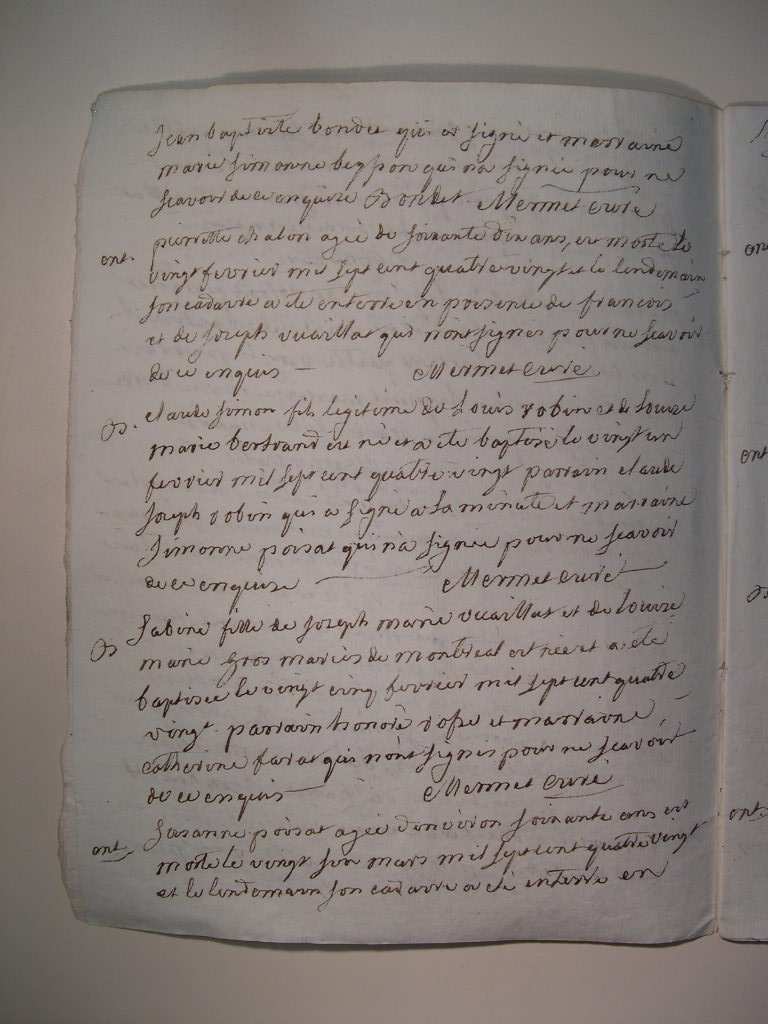 Jean baptiste bondet qui a signé et marraine
marie simonne beysson qui n'a signée pour ne
scavoir de ce enquise Bondet Mermet curé
ent. pierrette chalon agée de soixante dix ans, est morte le
vingt fevrier mil sept cent quatre vingt et le lendemain
son cadavre a ete enterré en presence de francois
et de Joseph vuaillat qui n'ont signes pour ne scavoir
de ce enquis Mermet curé
B. claude simon fils legitime de Louis robin et de Louise
marie bertrand est né et a ete baptisé le vingt un
fevrier mil sept cent quatre vingt parrain claude
Joseph robin qui a signé a la minute et marraine
Simonne poisat qui n'a signée pour ne scavoir
de ce enquise Mermet curé
B Sabine fille de Joseph marie vuaillat et de louise
marie gros mariés de montreal est née et a eté
baptisée le vingt cinq fevrier mil sept cent quatre
vingt parrain honoré rosse et marraine
catherine farat qui n'ont signés pour ne scavoir
de ce enquis Mermet curé
ent. Susanne poisat agée d'environ soixante ans est
morte le vingt six mars mil sept cent quatre vingt
et le lendemain son cadavre a eté enterré en
ent
B
ent.